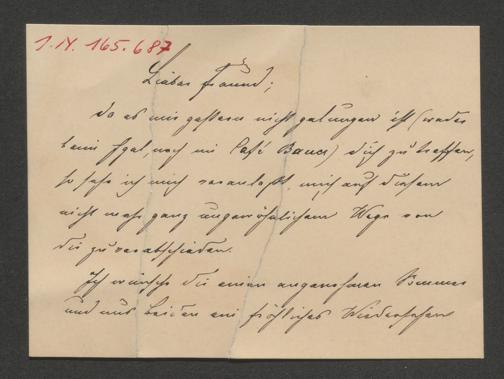 I.N. 165.687
Lieber Freund;
Da es mir gestern nicht gelungen ist (weder
beim Igel, noch im Café Bauer) dich zu treffen,
so sehe ich mich veranlaßt, mich auf diesem
nicht mehr ganz ungewöhnlichem Wege von
dir zu verabschieden.
Ich wünsche dir einen angenehmen Sommer
und uns beiden ein fröhliches Wiedersehen